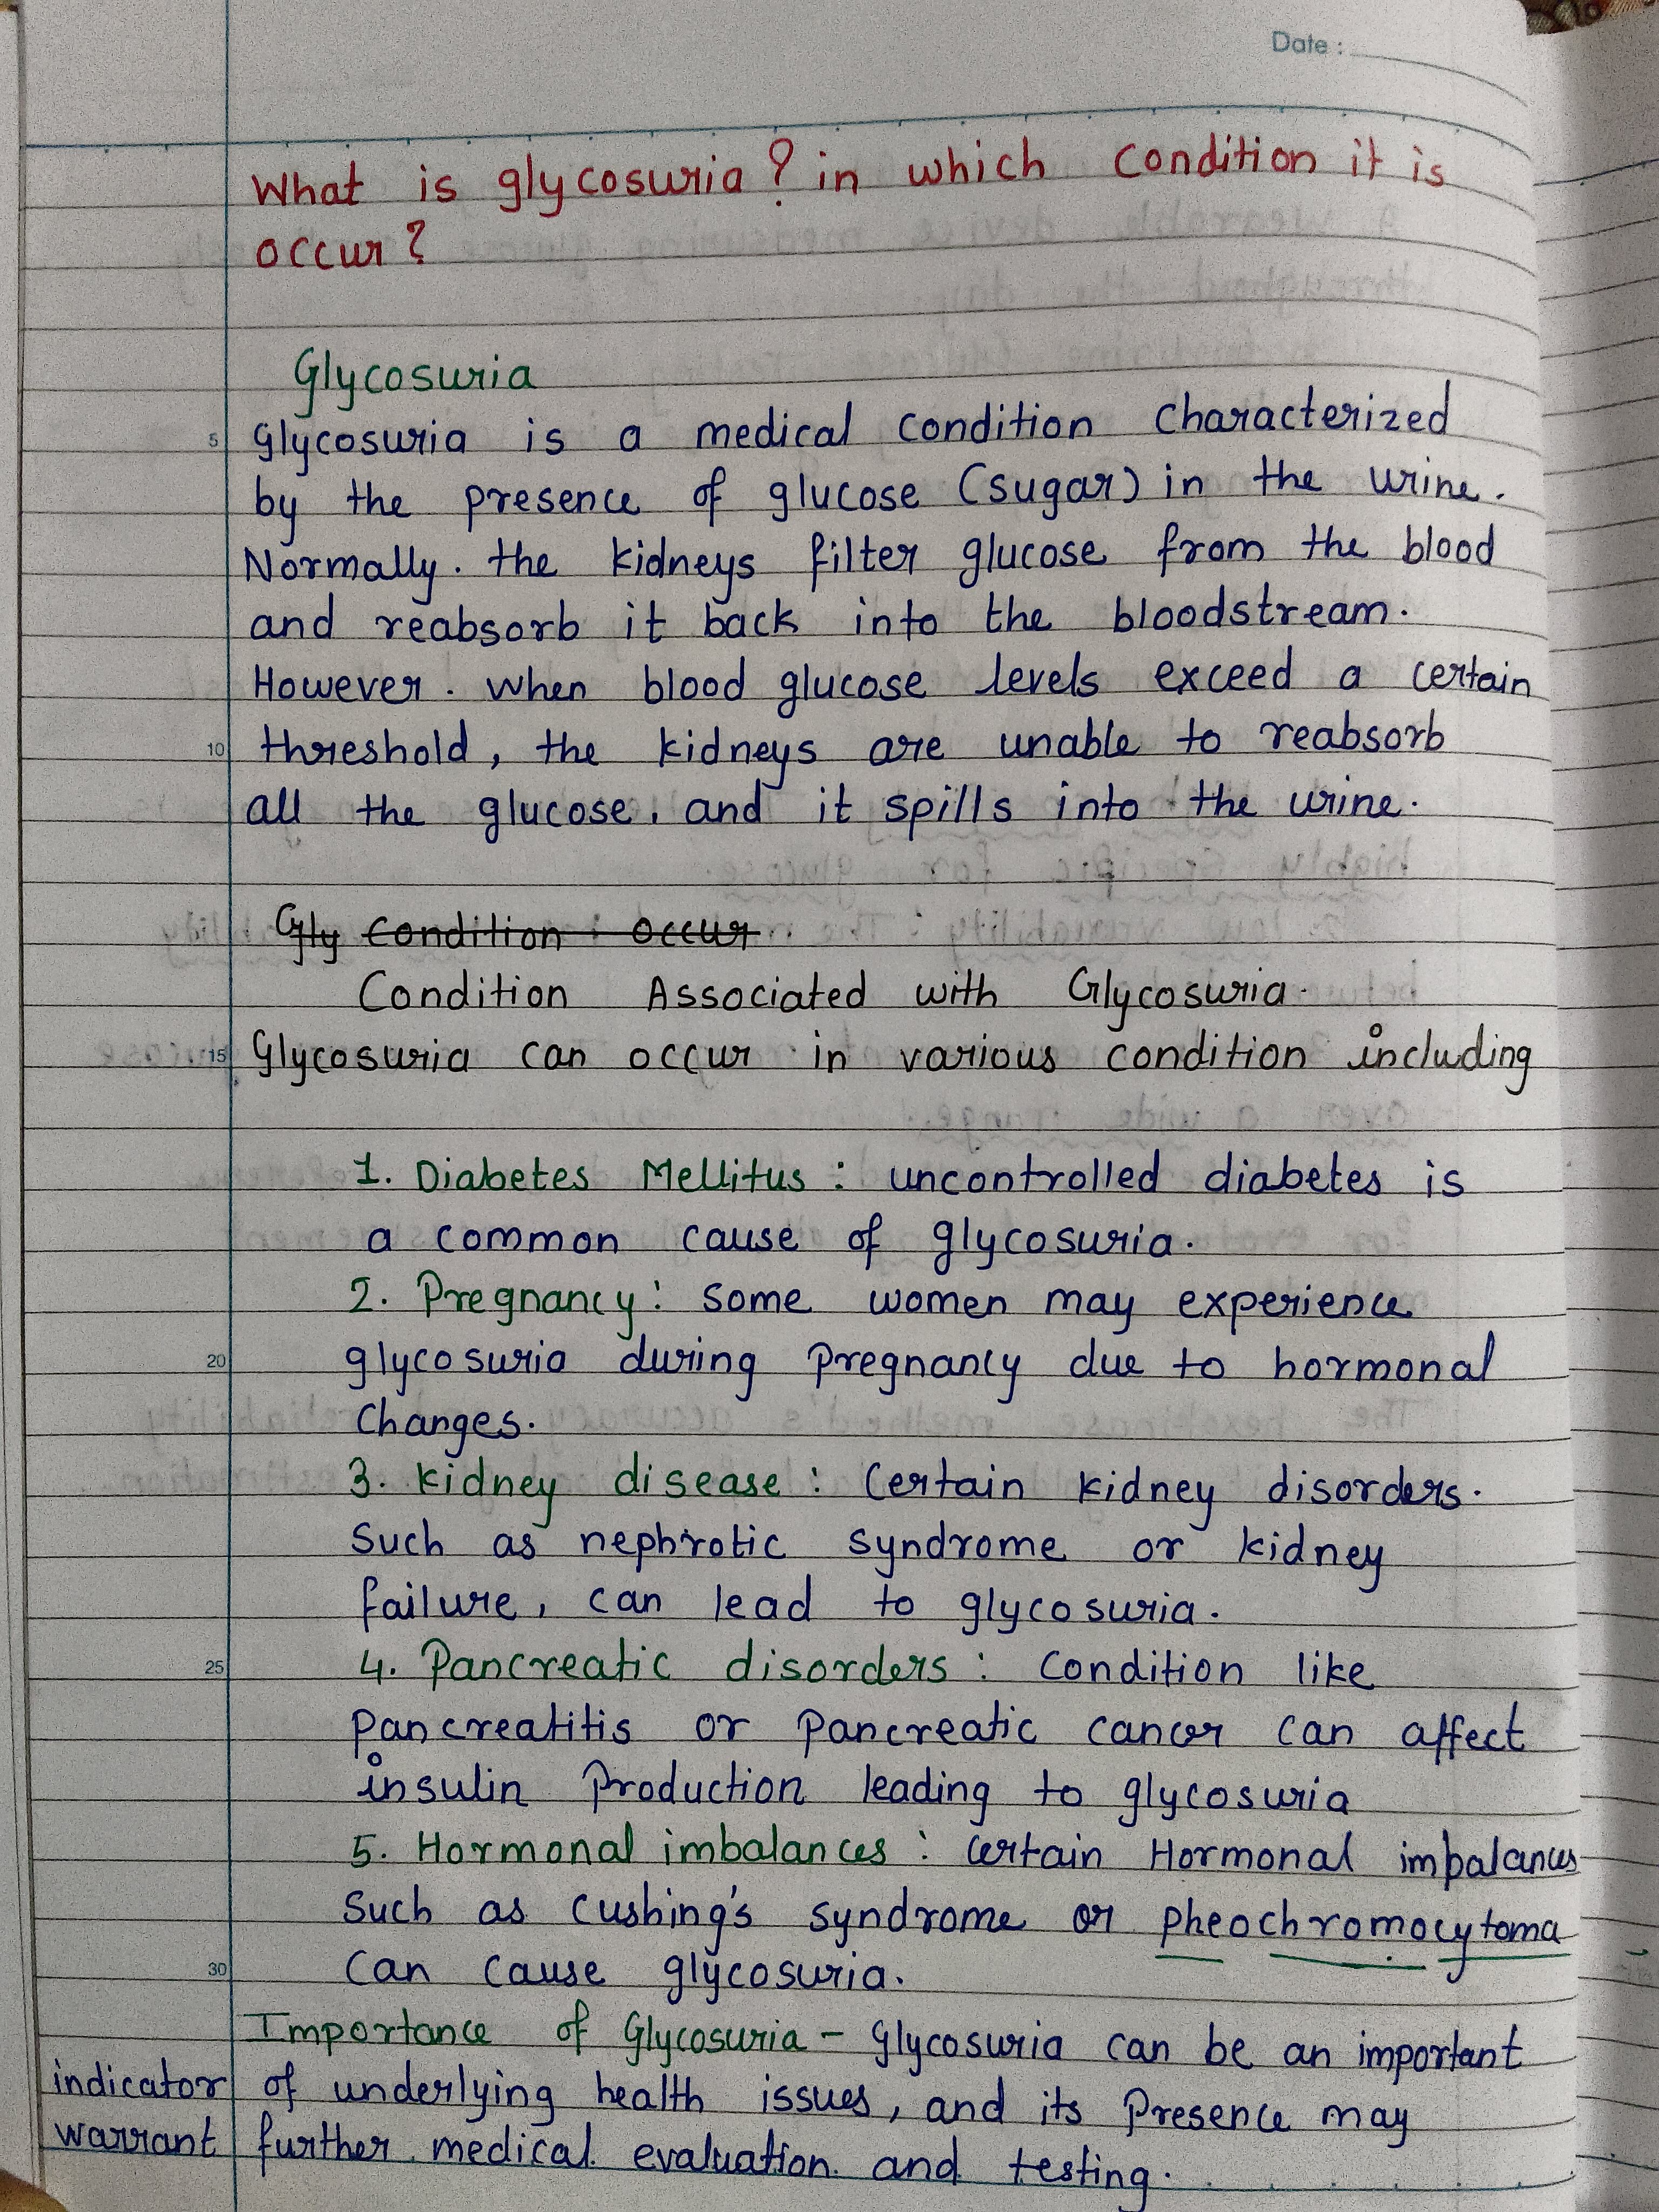 Date :
What is glycosuria? in which condition it is
occur?
Glycosuria
5 Glycosuria is a medical condition characterized
by the presence of glucose (sugar) in the urine.
Normally. the kidneys filter glucose from the blood
and reabsorb it back into the bloodstream.
However. when blood glucose levels exceed a certain
10 threshold, the kidneys are unable to reabsorb
all the glucose, and it spills into the urine.
Gly Condition occur
Condition Associated with Glycosuria.
15 Glycosuria can occur in various condition including
1. Diabetes Mellitus : uncontrolled diabetes is
a common cause of glycosuria.
2. Pregnancy: some women may experience
20 glycosuria during pregnancy due to hormonal
changes.
3. kidney disease : Certain kidney disorders.
Such as nephrotic syndrome or kidney
failure, can lead to glycosuria.
25 4. Pancreatic disorders : Condition like
pancreatitis or pancreatic cancer can affect
insulin production leading to glycosuria
5. Hormonal imbalances : certain Hormonal imbalances
Such as cushing's syndrome or pheochromocytoma
30 can cause glycosuria.
Importance of Glycosuria - Glycosuria can be an important
indicator of underlying health issues, and its presence may
warrant further medical evaluation and testing.